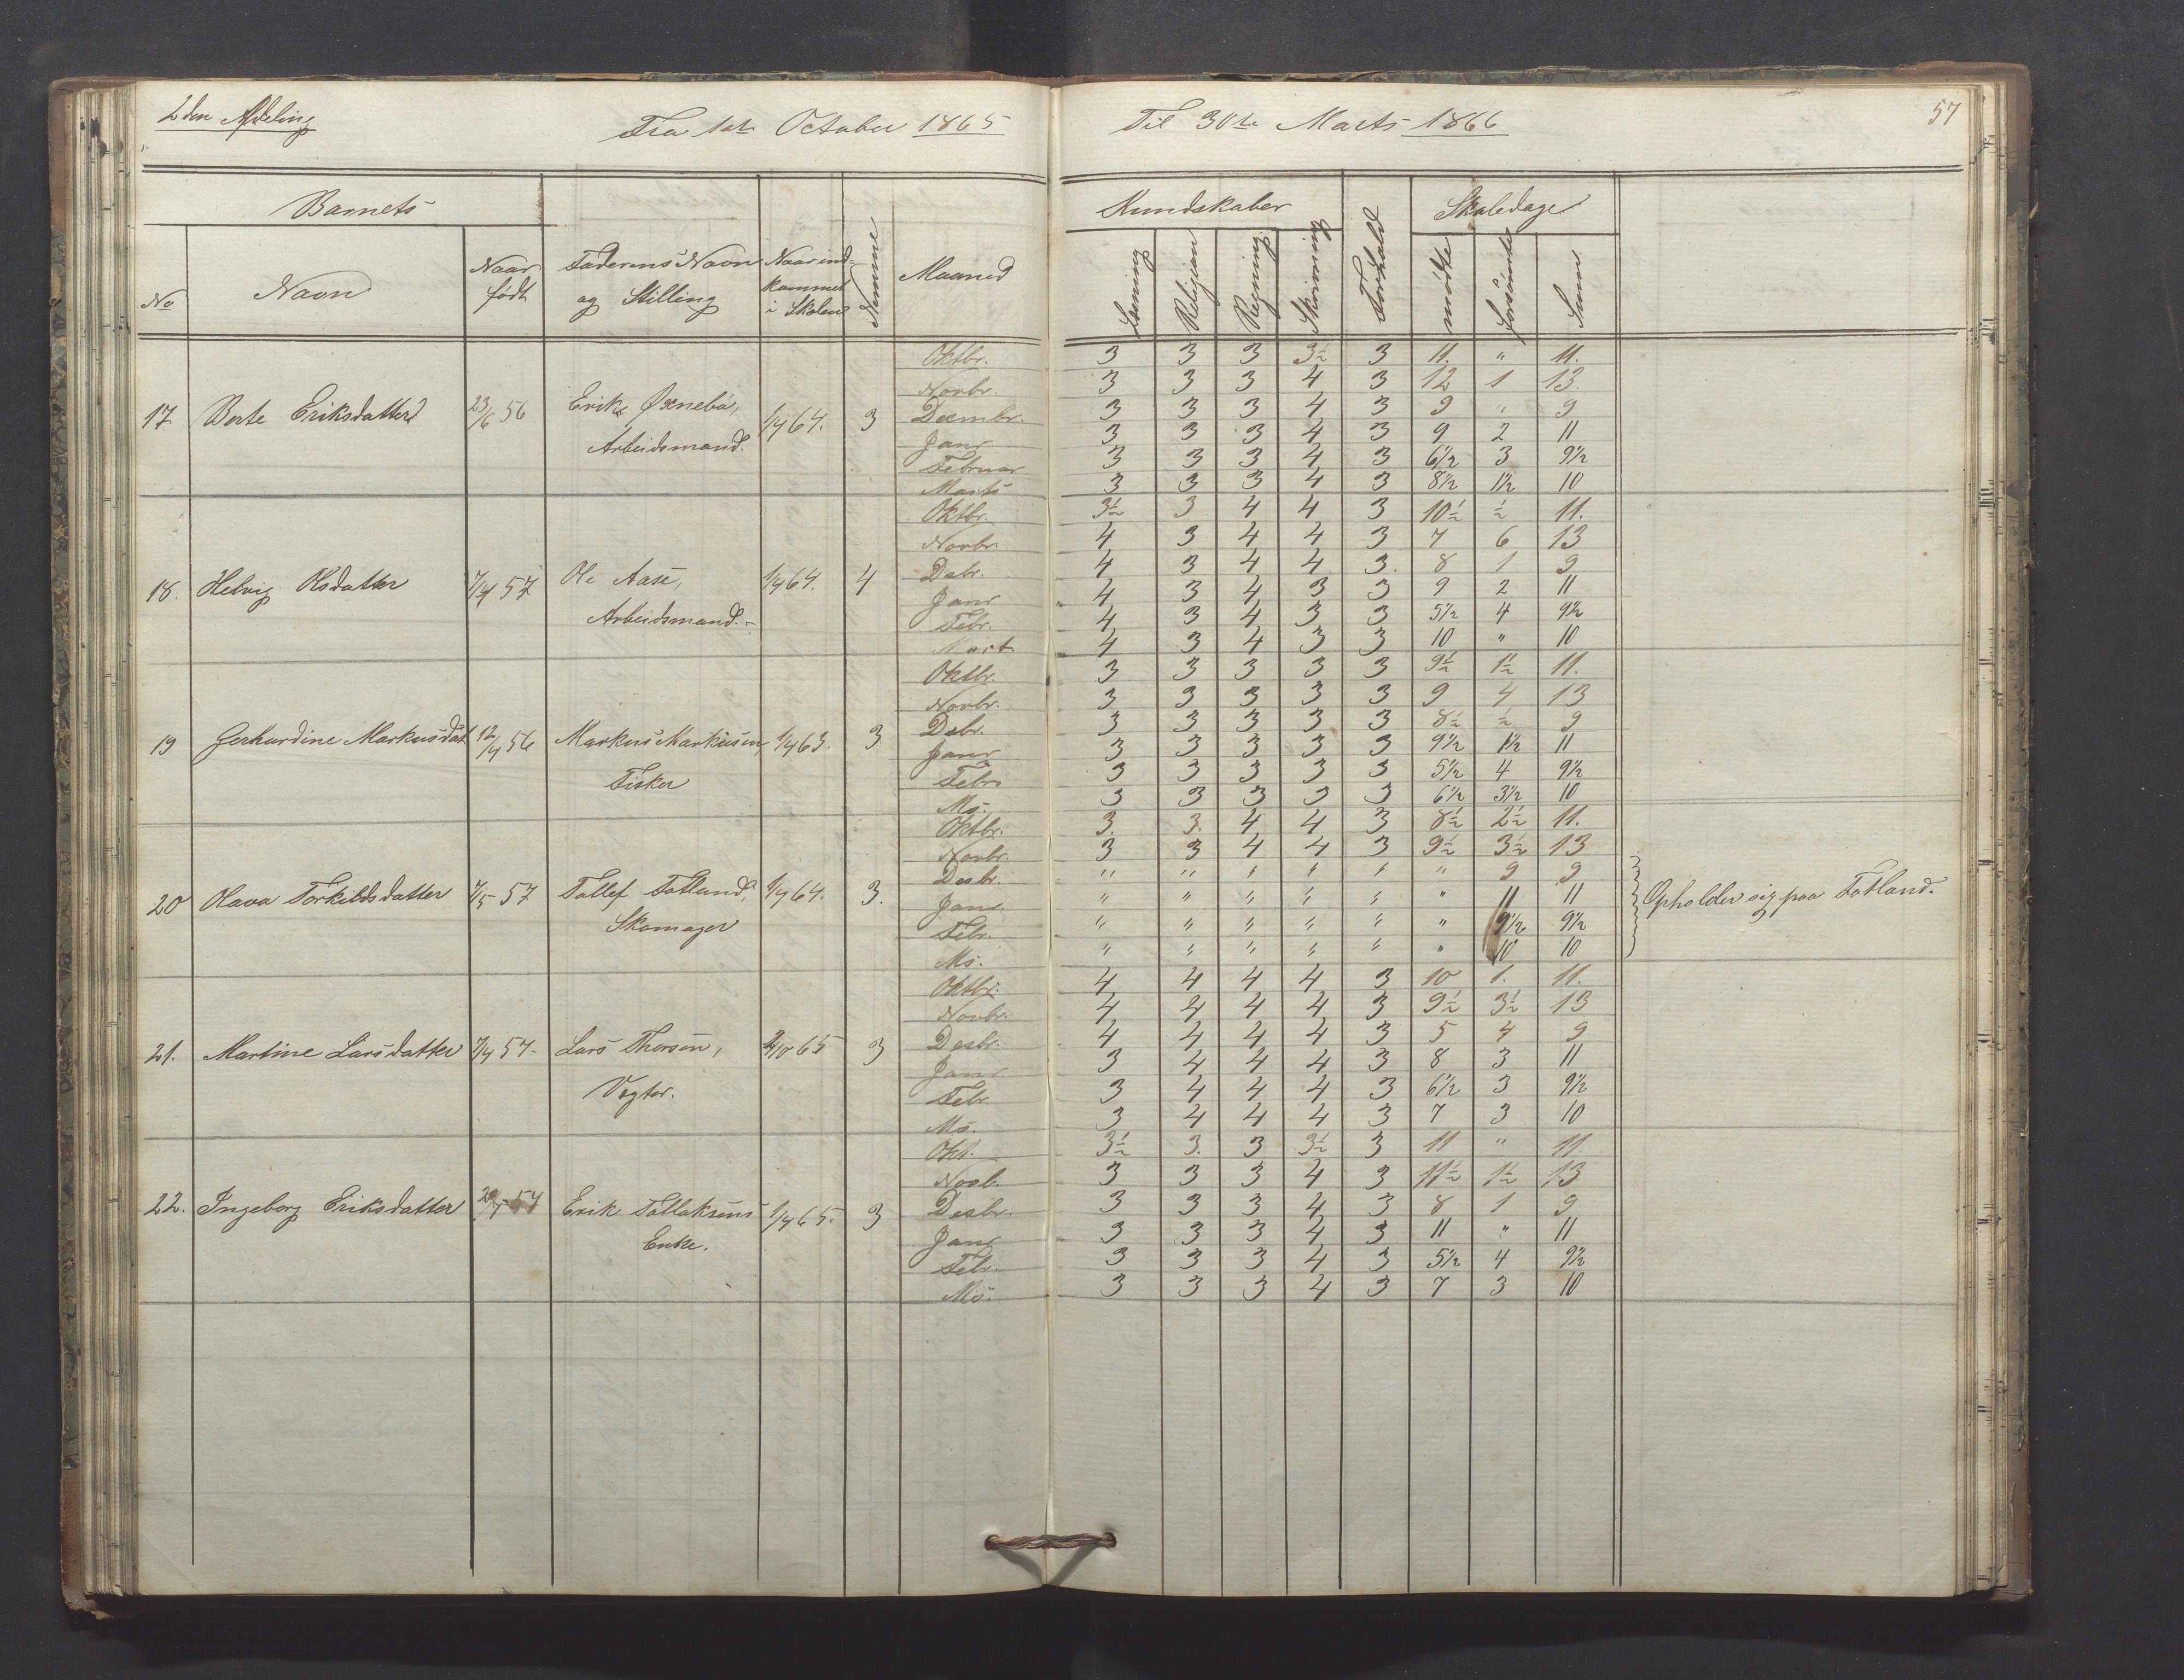 2den Afdeling
Fra 1ste October 1865
Til 30te Marts 1866
57
Barnets
Kundskaber
Skoledage
No
Navn
Naar født
Faderens Navn og Stilling
Naar indkommet i Skolen
Nemme
Maaned
Læsning
Religion
Regning
Skrivning
Forhold
mødte
forsømte
Sum
17 Berte Eriksdatter 23/6 56 Erik Øxnebø, Arbeidsmand. 1/4 64. 3
Oktbr. 3 3 3 3½ 3 11. " 11.
Novbr. 3 3 3 4 3 12 1 13.
Decmbr. 3 3 3 4 3 9 " 9
Janr 3 3 3 4 3 9 2 11
Februar 3 3 3 4 3 6½ 3 9½
Marts 3 3 3 4 3 8½ 1½ 10
18. Helvig Olsdatter 7/4 57 Ole Aase, Arbeidsmand.- 1/4 64. 4
Oktbr. 3½ 3 4 4 3 10½ ½ 11.
Novbr. 4 3 4 4 3 7 6 13
Debr. 4 3 4 4 3. 8 1 9
Janr 4 3 4 3 3 9 2 11
Febr. 4 3 4 3 3 5½ 4 9½
Mart 4 3 4 3 3 10 " 10
19 Gerhardine Markusdat 12/4 56 Markus Markusen, Fisker 1/4 63. 3
Oktbr. 3 3 3 3 3 9½ 1½ 11.
Novbr. 3 3 3 3 3 9 4 13
Debr. 3 3 3 3 3 8½ ½ 9
Janr 3 3 3 3 3 9½ 1½ 11
Febr 3 3 3 3 3 5½ 4 9½
Ms. 3 3 3 3 3 6½ 3½ 10
20 Olava Torkildsdatter 7/5 57 Tollef Fotland, Skomager 1/4 64. 3.
Oktbr. 3. 3. 4 4 3 8½ 2½ 11.
Novbr. 3 3 4 4 3 9½ 3½ 13
Desbr. " " " " " " 9 9
Janr. " " " " " " 11 11
Febr. " " " " " " 9½ 9½
Ms. " " " " " " 10 10
Opholder sig paa Fotland.
21. Martine Larsdatter 7/4 57- Lars Thorsen, Vegter. 2/10 65 3
Oktbr. 4 4 4 4 3 10 1. 11.
Novbr. 4 4 4 4 3 9½ 3½ 13
Desbr. 4 4 4 4 3 5 4 9
Janr 3 4 4 4 3 8 3 11
Febr. 3 4 4 4 3 6½ 3 9½
Ms. 3 4 4 4 3 7 3 10
22. Ingeborg Eriksdatter Erik Tollaksens Enke. 1/4 65. 3
Okt. 3½ 3. 3 3½ 3 11 " 11.
Novb. 3 3 3 4 3 11½ 1½ 13
Desbr. 3 3 3 4 3 8 1 9
Janr 3 3 3 4 3 11 " 11
Febr. 3 3 3 4 3 5½ 4 9½
Ms. 3 3 3 4 3 7 3 10